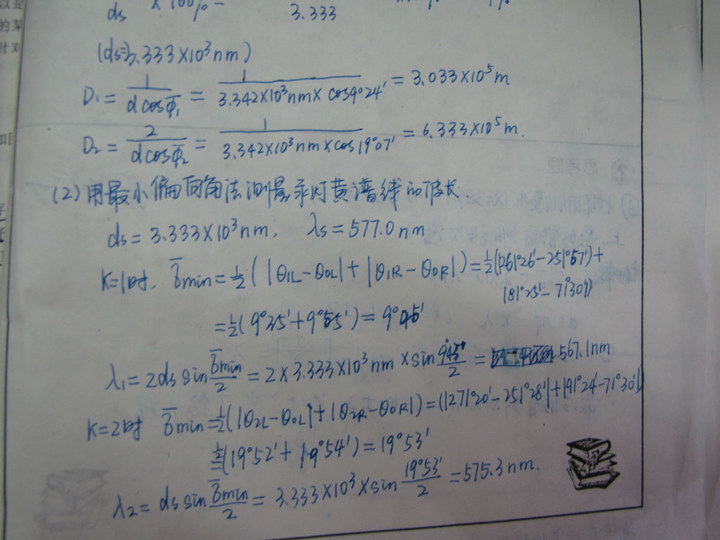 ds × 100% =
3.333
(ds=3.333×10³nm)
D₁ = 1/(d cosφ̄₁) = 1/(3.342×10³nm×cos9°24′) = 3.033×10⁵m
D₂ = 2/(d cosφ̄₂) = 1/(3.342×10³nm×cos19°07′) = 6.333×10⁵m.
(2) 用最小偏向角法测量汞灯黄谱线的波长
ds = 3.333×10³nm, λs = 577.0nm
K=1时, δ̄min = ½(|θ1L-θ0L|+|θ1R-θ0R|) = ½(|261°26-251°51′|+
|81°25′-71°30′|)
= ½(9°35′+9°55′) = 9°45′
λ₁ = 2ds sin δ̄min/2 = 2×3.333×10³nm×sin 9°45′/2 = 567.1nm
K=2时 δ̄min = ½(|θ2L-θ0L|+|θ2R-θ0R|) = (|271°20′-251°28′|+|91°24′-71°30′|)
½(19°52′+19°54′) = 19°53′
λ₂ = ds sin δ̄min/2 = 3.333×10³×sin 19°53′/2 = 575.3nm.